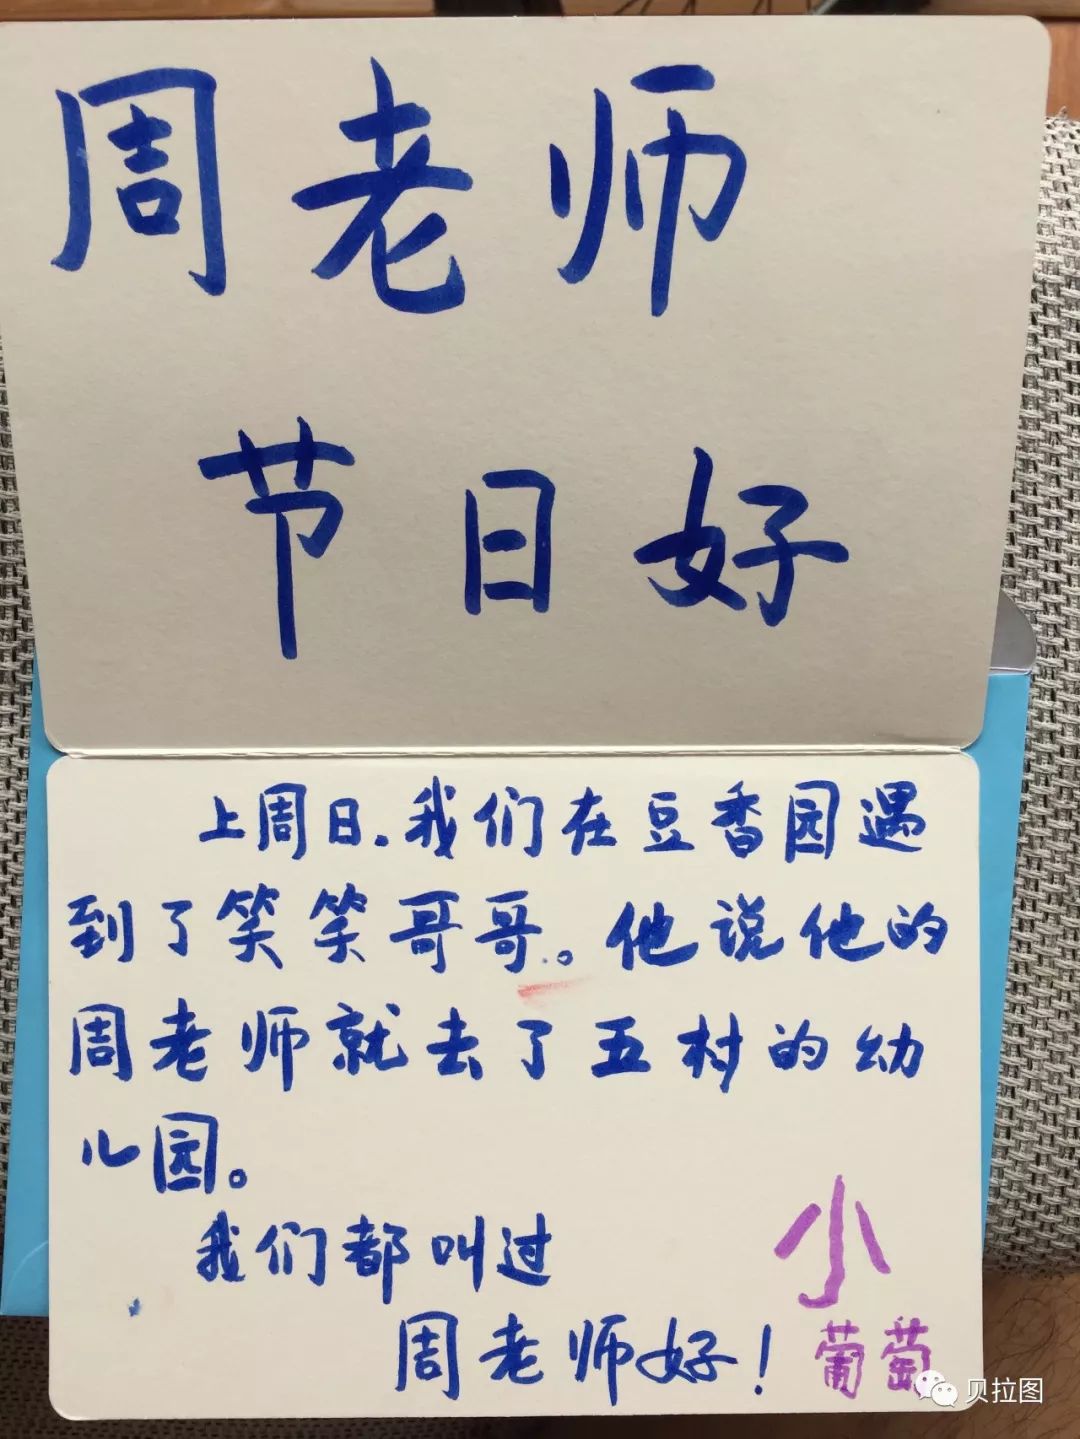 周老师
节日好
上周日.我们在豆香园遇
到了笑笑哥哥。他说他的
周老师就去了五村的幼
儿园。
我们都叫过
周老师好！
小
葡萄
贝拉图